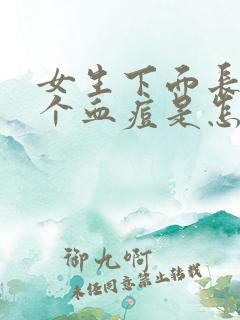 女生下面長
个血痘是怎
御九啊
未经同意禁止转载